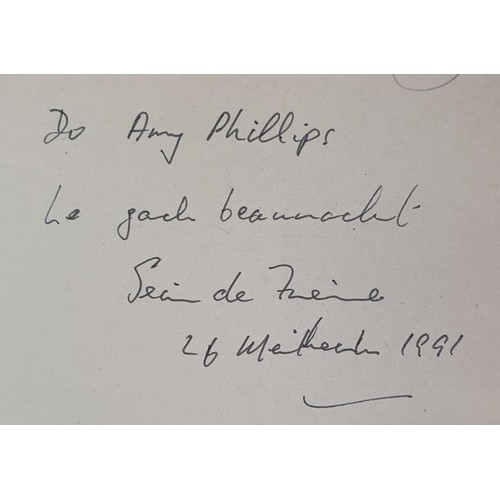 Do Amy Phillips
Le gach beannacht
Seán de Fréine
26 Meitheamh 1991